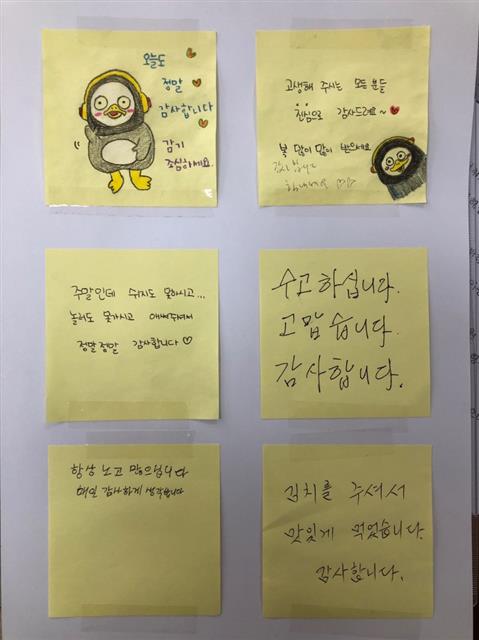 오늘도
정말
감사합니다
감기
조심하세요.
고생해 주시는 모든 분들
진심으로 감사드려요~
복 많이 많이 받으세요
감사합니다
힘내세요 ♡♡
주말인데 쉬지도 못하시고...
놀러도 못가시고 애써주셔서
정말정말 감사합니다 ♡
수고하십니다.
고맙습니다.
감사합니다.
항상 노고 많으십니다
매인 감사하게 생각합니다
김치를 주셔서
맛있게 먹었습니다.
감사합니다.